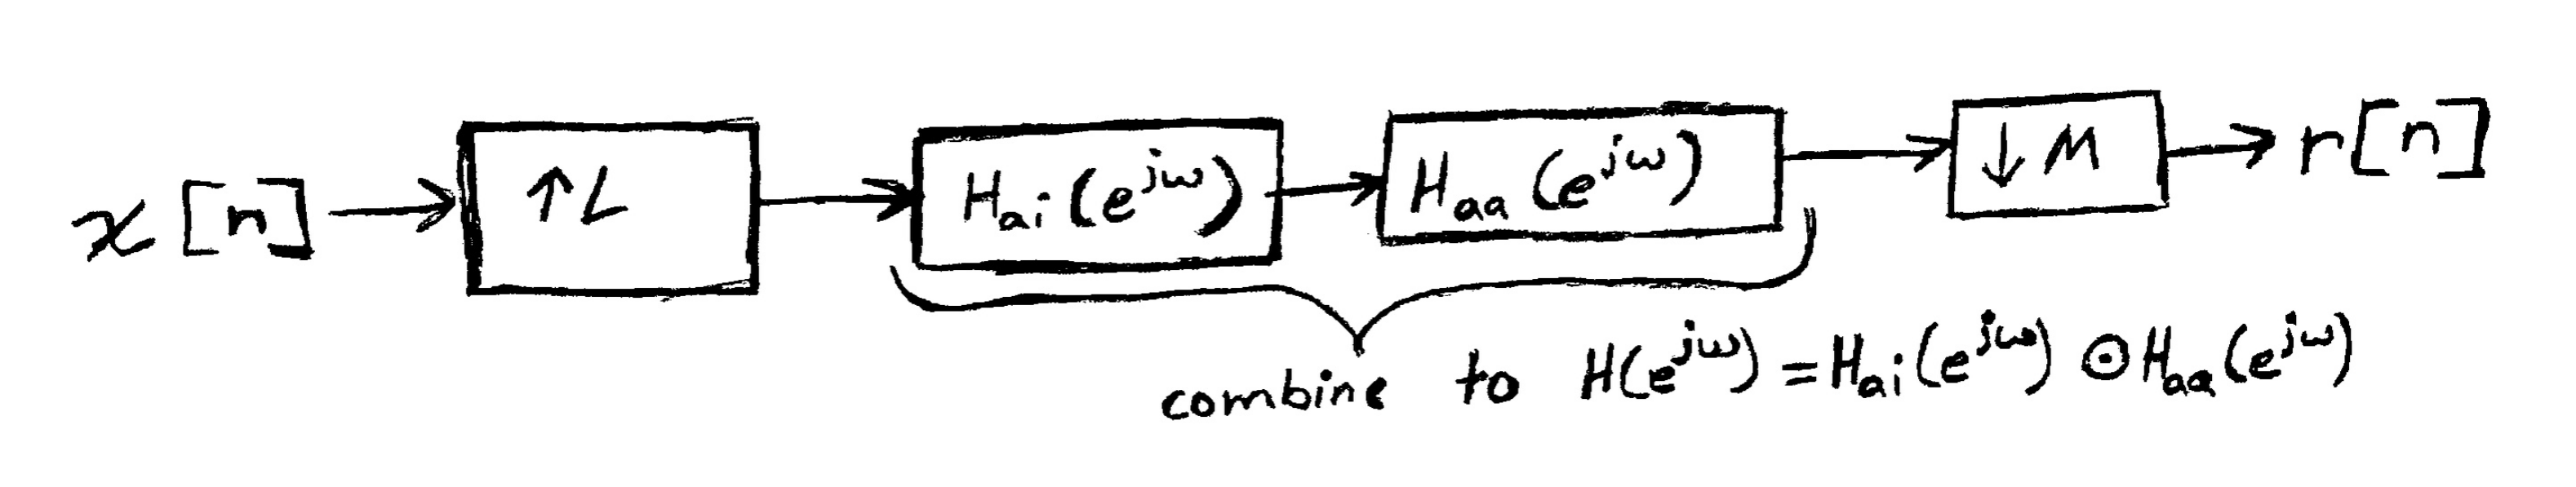 x[n] ↑L H_ai(e^{jω}) H_aa(e^{jω}) ↓M r[n]
combine to H(e^{jω}) = H_ai(e^{jω}) ⊙ H_aa(e^{jω})